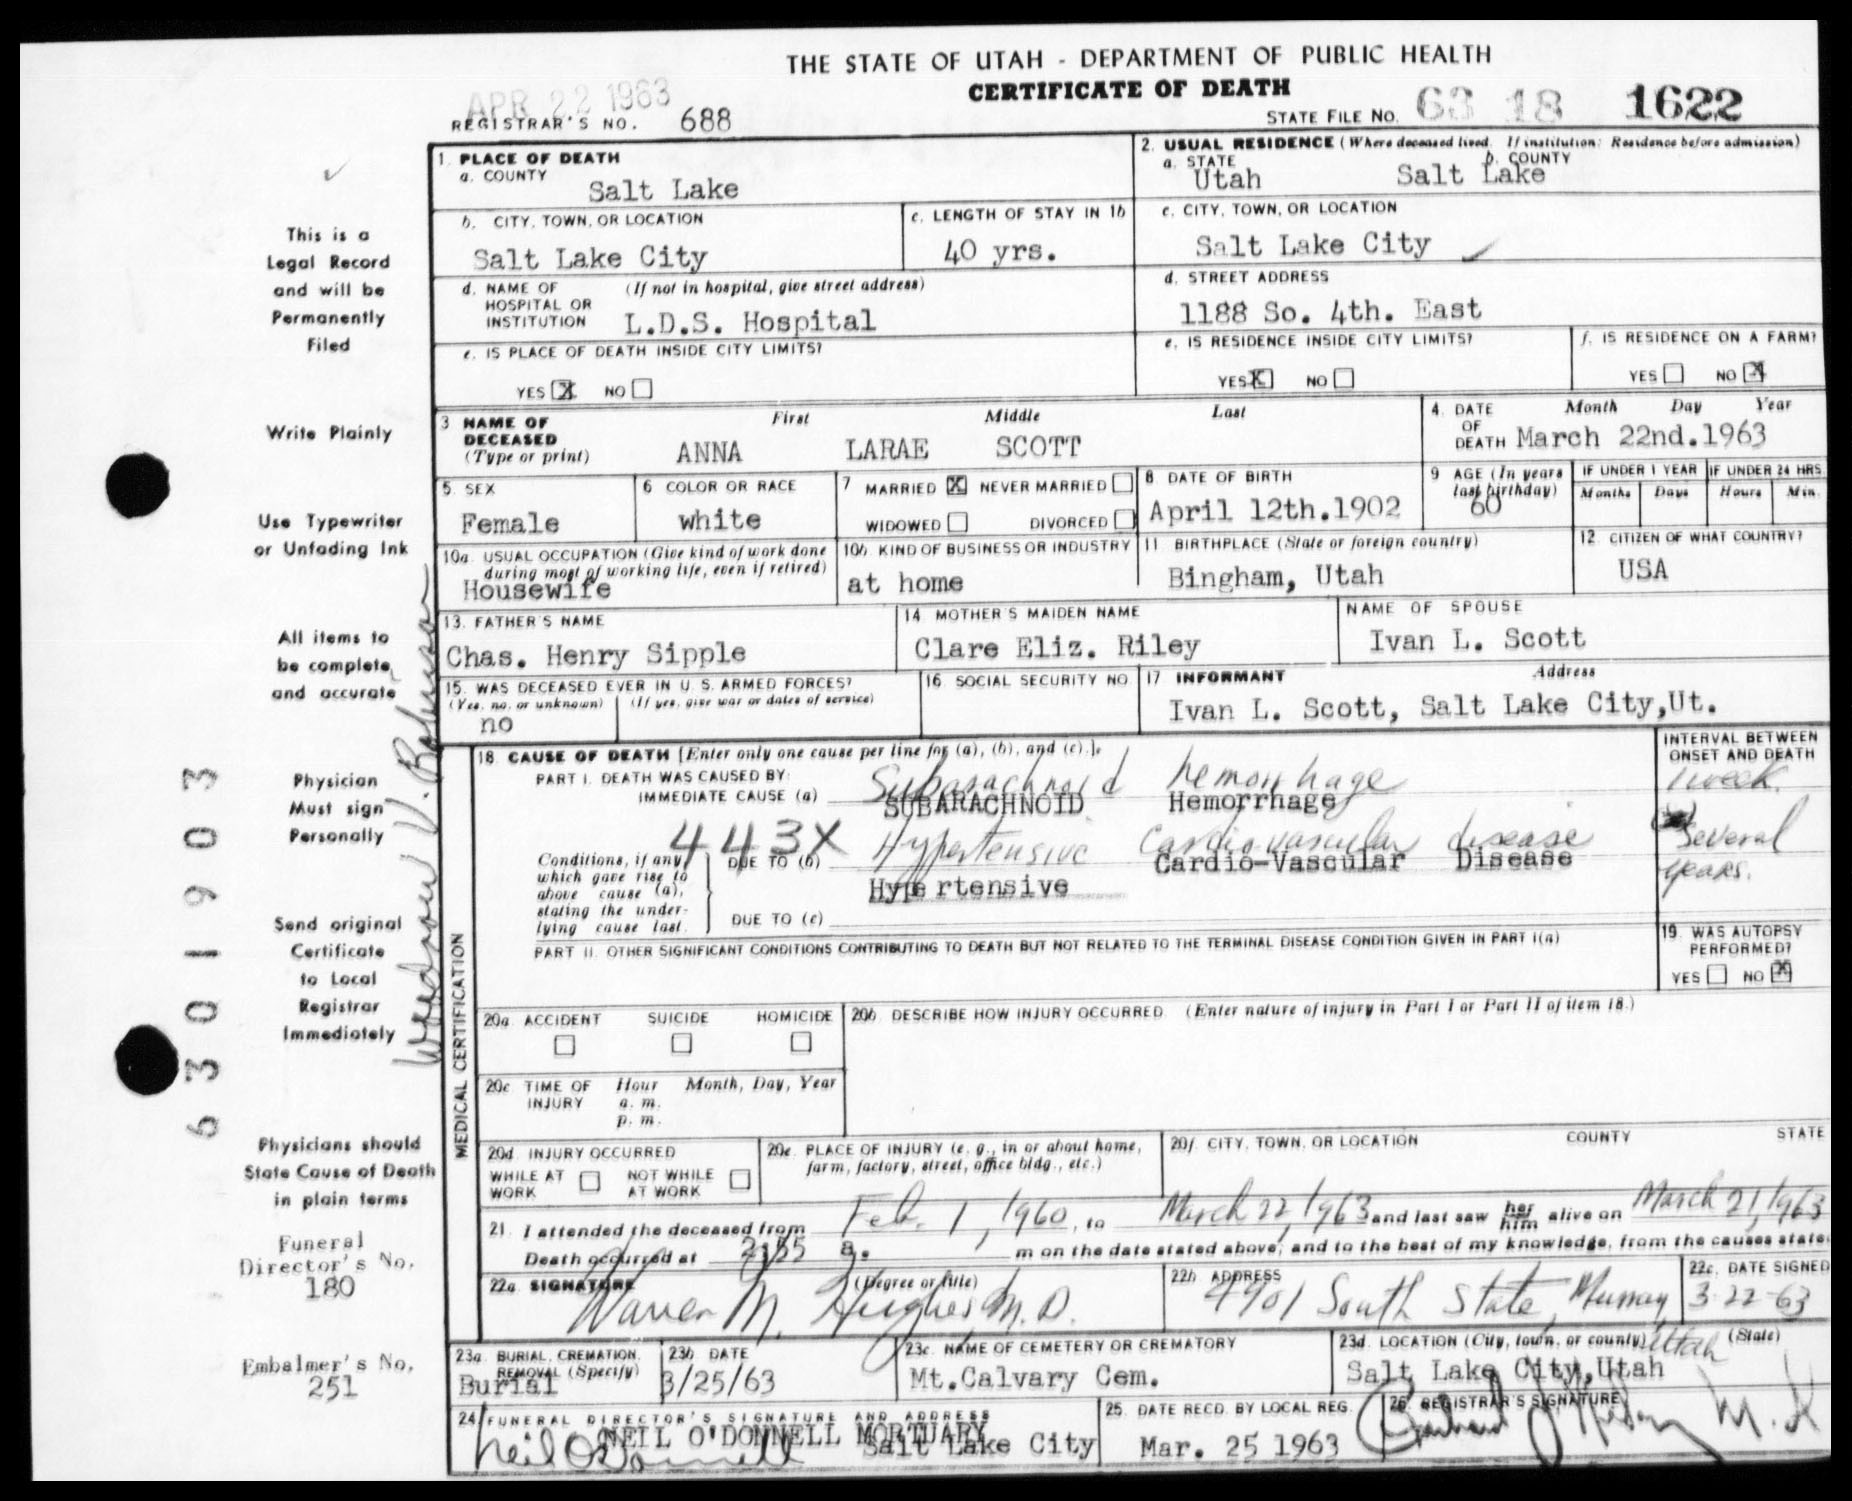 THE STATE OF UTAH - DEPARTMENT OF PUBLIC HEALTH
CERTIFICATE OF DEATH
APR 22 1963
REGISTRAR'S NO. 688
STATE FILE NO. 63 18 1622
1. PLACE OF DEATH
a. COUNTY
Salt Lake
2. USUAL RESIDENCE (Where deceased lived. If institution: Residence before admission)
a. STATE b. COUNTY
Utah Salt Lake
b. CITY, TOWN, OR LOCATION
Salt Lake City
c. LENGTH OF STAY IN 1b
40 yrs.
c. CITY, TOWN, OR LOCATION
Salt Lake City
d. NAME OF (If not in hospital, give street address)
HOSPITAL OR
INSTITUTION L.D.S. Hospital
d. STREET ADDRESS
1188 So. 4th. East
e. IS PLACE OF DEATH INSIDE CITY LIMITS?
YES X NO
e. IS RESIDENCE INSIDE CITY LIMITS?
YES X NO
f. IS RESIDENCE ON A FARM?
YES NO X
3 NAME OF
DECEASED
(Type or print)
First Middle Last
ANNA LARAE SCOTT
4. DATE
OF
DEATH
Month Day Year
March 22nd.1963
5. SEX
Female
6 COLOR OR RACE
white
7 MARRIED X NEVER MARRIED
WIDOWED DIVORCED
8 DATE OF BIRTH
April 12th.1902
9 AGE (In years
last birthday)
60
IF UNDER 1 YEAR
Months Days
IF UNDER 24 HRS.
Hours Min.
10a. USUAL OCCUPATION (Give kind of work done
during most of working life, even if retired)
Housewife
10b. KIND OF BUSINESS OR INDUSTRY
at home
11 BIRTHPLACE (State or foreign country)
Bingham, Utah
12. CITIZEN OF WHAT COUNTRY?
USA
13. FATHER'S NAME
Chas. Henry Sipple
14 MOTHER'S MAIDEN NAME
Clare Eliz. Riley
NAME OF SPOUSE
Ivan L. Scott
15. WAS DECEASED EVER IN U. S. ARMED FORCES?
(Yes, no, or unknown) (If yes, give war or dates of service)
no
16. SOCIAL SECURITY NO.
17 INFORMANT Address
Ivan L. Scott, Salt Lake City,Ut.
MEDICAL CERTIFICATION
18. CAUSE OF DEATH [Enter only one cause per line for (a), (b), and (c).]
PART I. DEATH WAS CAUSED BY:
IMMEDIATE CAUSE (a) Subarachnoid hemorrhage
SUBARACHNOID Hemorrhage
INTERVAL BETWEEN
ONSET AND DEATH
1 week.
443X
Conditions, if any,
which gave rise to
above cause (a),
stating the under-
lying cause last.
DUE TO (b) Hypertensive Cardiovascular disease
Cardio-Vascular Disease
Hypertensive
Several
years.
DUE TO (c)
PART II. OTHER SIGNIFICANT CONDITIONS CONTRIBUTING TO DEATH BUT NOT RELATED TO THE TERMINAL DISEASE CONDITION GIVEN IN PART I(a)
19. WAS AUTOPSY
PERFORMED?
YES NO X
20a. ACCIDENT SUICIDE HOMICIDE
20b. DESCRIBE HOW INJURY OCCURRED. (Enter nature of injury in Part I or Part II of item 18.)
20c. TIME OF
INJURY
Hour Month, Day, Year
a. m.
p. m.
20d. INJURY OCCURRED
WHILE AT
WORK
NOT WHILE
AT WORK
20e. PLACE OF INJURY (e. g., in or about home,
farm, factory, street, office bldg., etc.)
20f. CITY, TOWN, OR LOCATION COUNTY STATE
21. I attended the deceased from Feb. 1, 1960, to March 22, 1963 and last saw her him alive on March 21, 1963
Death occurred at 2:55 a. m on the date stated above; and to the best of my knowledge, from the causes state
22a. SIGNATURE (Degree or title)
Warren M. Hughes M.D.
22b. ADDRESS
4901 South State, Murray, Utah
22c. DATE SIGNED
3-22-63
23a. BURIAL, CREMATION,
REMOVAL (Specify)
Burial
23b DATE
3/25/63
23c. NAME OF CEMETERY OR CREMATORY
Mt.Calvary Cem.
23d. LOCATION (City, town, or county) (State)
Salt Lake City,Utah
24. FUNERAL DIRECTOR'S SIGNATURE AND ADDRESS
NEIL O'DONNELL MORTUARY
Neil O'Donnell Salt Lake City
25. DATE RECD. BY LOCAL REG.
Mar. 25 1963
26. REGISTRAR'S SIGNATURE
This is a
Legal Record
and will be
Permanently
Filed
Write Plainly
Use Typewriter
or Unfading Ink
All items to
be complete
and accurate
Physician
Must sign
Personally
Send original
Certificate
to Local
Registrar
Immediately
Physicians should
State Cause of Death
in plain terms
Funeral
Director's No.
180
Embalmer's No.
251
6301903
Woodrow V.